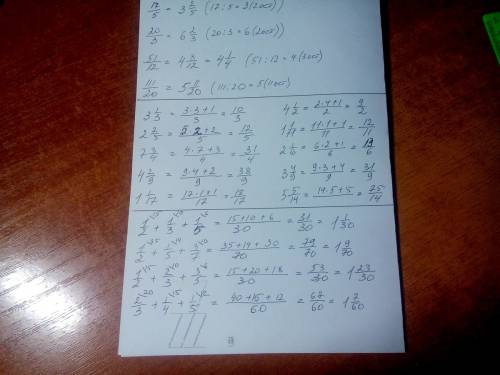 17/5 = 3 2/5 (17:5=3(2ост))
20/3 = 6 2/3 (20:3=6(2ост))
51/12 = 4 3/12 = 4 1/4 (51:12=4(3ост)
111/20 = 5 11/20 (111:20=5(11ост)
3 1/3 = 3·3+1/3 = 10/3 4 1/2 = 2·4+1/2 = 9/2
2 2/5 = 5·2+2/5 = 12/5 1 1/11 = 11·1+1/11 = 12/11
7 3/4 = 4·7+3/4 = 31/4 2 1/6 = 6·2+1/6 = 13/6
4 2/9 = 9·4+2/9 = 38/9 3 4/9 = 9·3+4/9 = 31/9
1 1/17 = 17·1+1/17 = 18/17 5 5/14 = 14·5+5/14 = 75/14
1/2 + 1/3 + 1/5 = 15+10+6/30 = 31/30 = 1 1/30
1/2 + 1/5 + 3/7 = 35+14+30/70 = 79/70 = 1 9/70
1/2 + 2/3 + 3/5 = 15+20+18/30 = 53/30 = 1 23/30
2/3 + 1/4 + 1/5 = 40+15+12/60 = 67/60 = 1 7/60